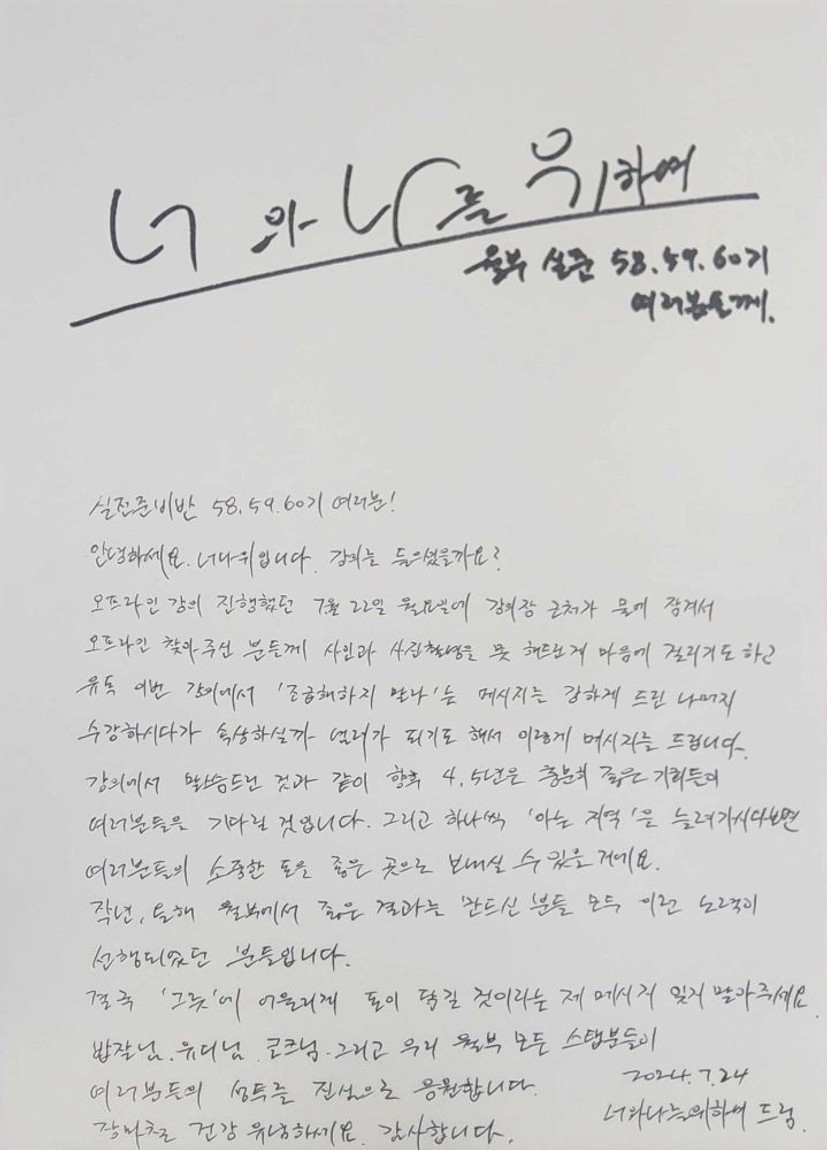 너와 나를 위하여
월부 실준 58.59.60기
여러분들께.
실전준비반 58.59.60기 여러분!
안녕하세요. 너나위입니다. 강의는 들으셨을까요?
오프라인 강의 진행했던 7월 22일 월요일에 강의장 근처가 물에 잠겨서
오프라인 찾아주신 분들께 사인과 사진촬영을 못 해드린게 마음에 걸리기도 하고
유독 이번 강의에서 '조급해하지 말라'는 메시지를 강하게 드린 나머지
수강하시다가 속상하실까 염려가 되기도 해서 이렇게 메시지를 드립니다.
강의에서 말씀드린 것과 같이 향후 4.5년은 충분히 좋은 기회들이
여러분들을 기다릴 것입니다. 그리고 하나씩 '아는 지역'을 늘려가시다보면
여러분들의 소중한 돈을 좋은 곳으로 보내실 수 있을 거에요.
작년, 올해 월부에서 좋은 결과를 만드신 분들 모두 이런 노력이
선행되었던 분들입니다.
결국 '그릇'에 어울리게 돈이 담길 것이라는 제 메시지 잊지 말아주세요.
밥잘님. 유디님. 코크님. 그리고 우리 월부 모든 스탭분들이
여러분들의 성투를 진심으로 응원합니다.
장마철 건강 유념하세요. 감사합니다.
2024.7.24
너와나를위하여 드림.